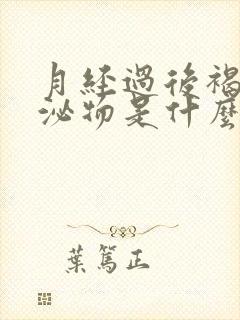 月經過後褐
泌物是什麼
葉篤正